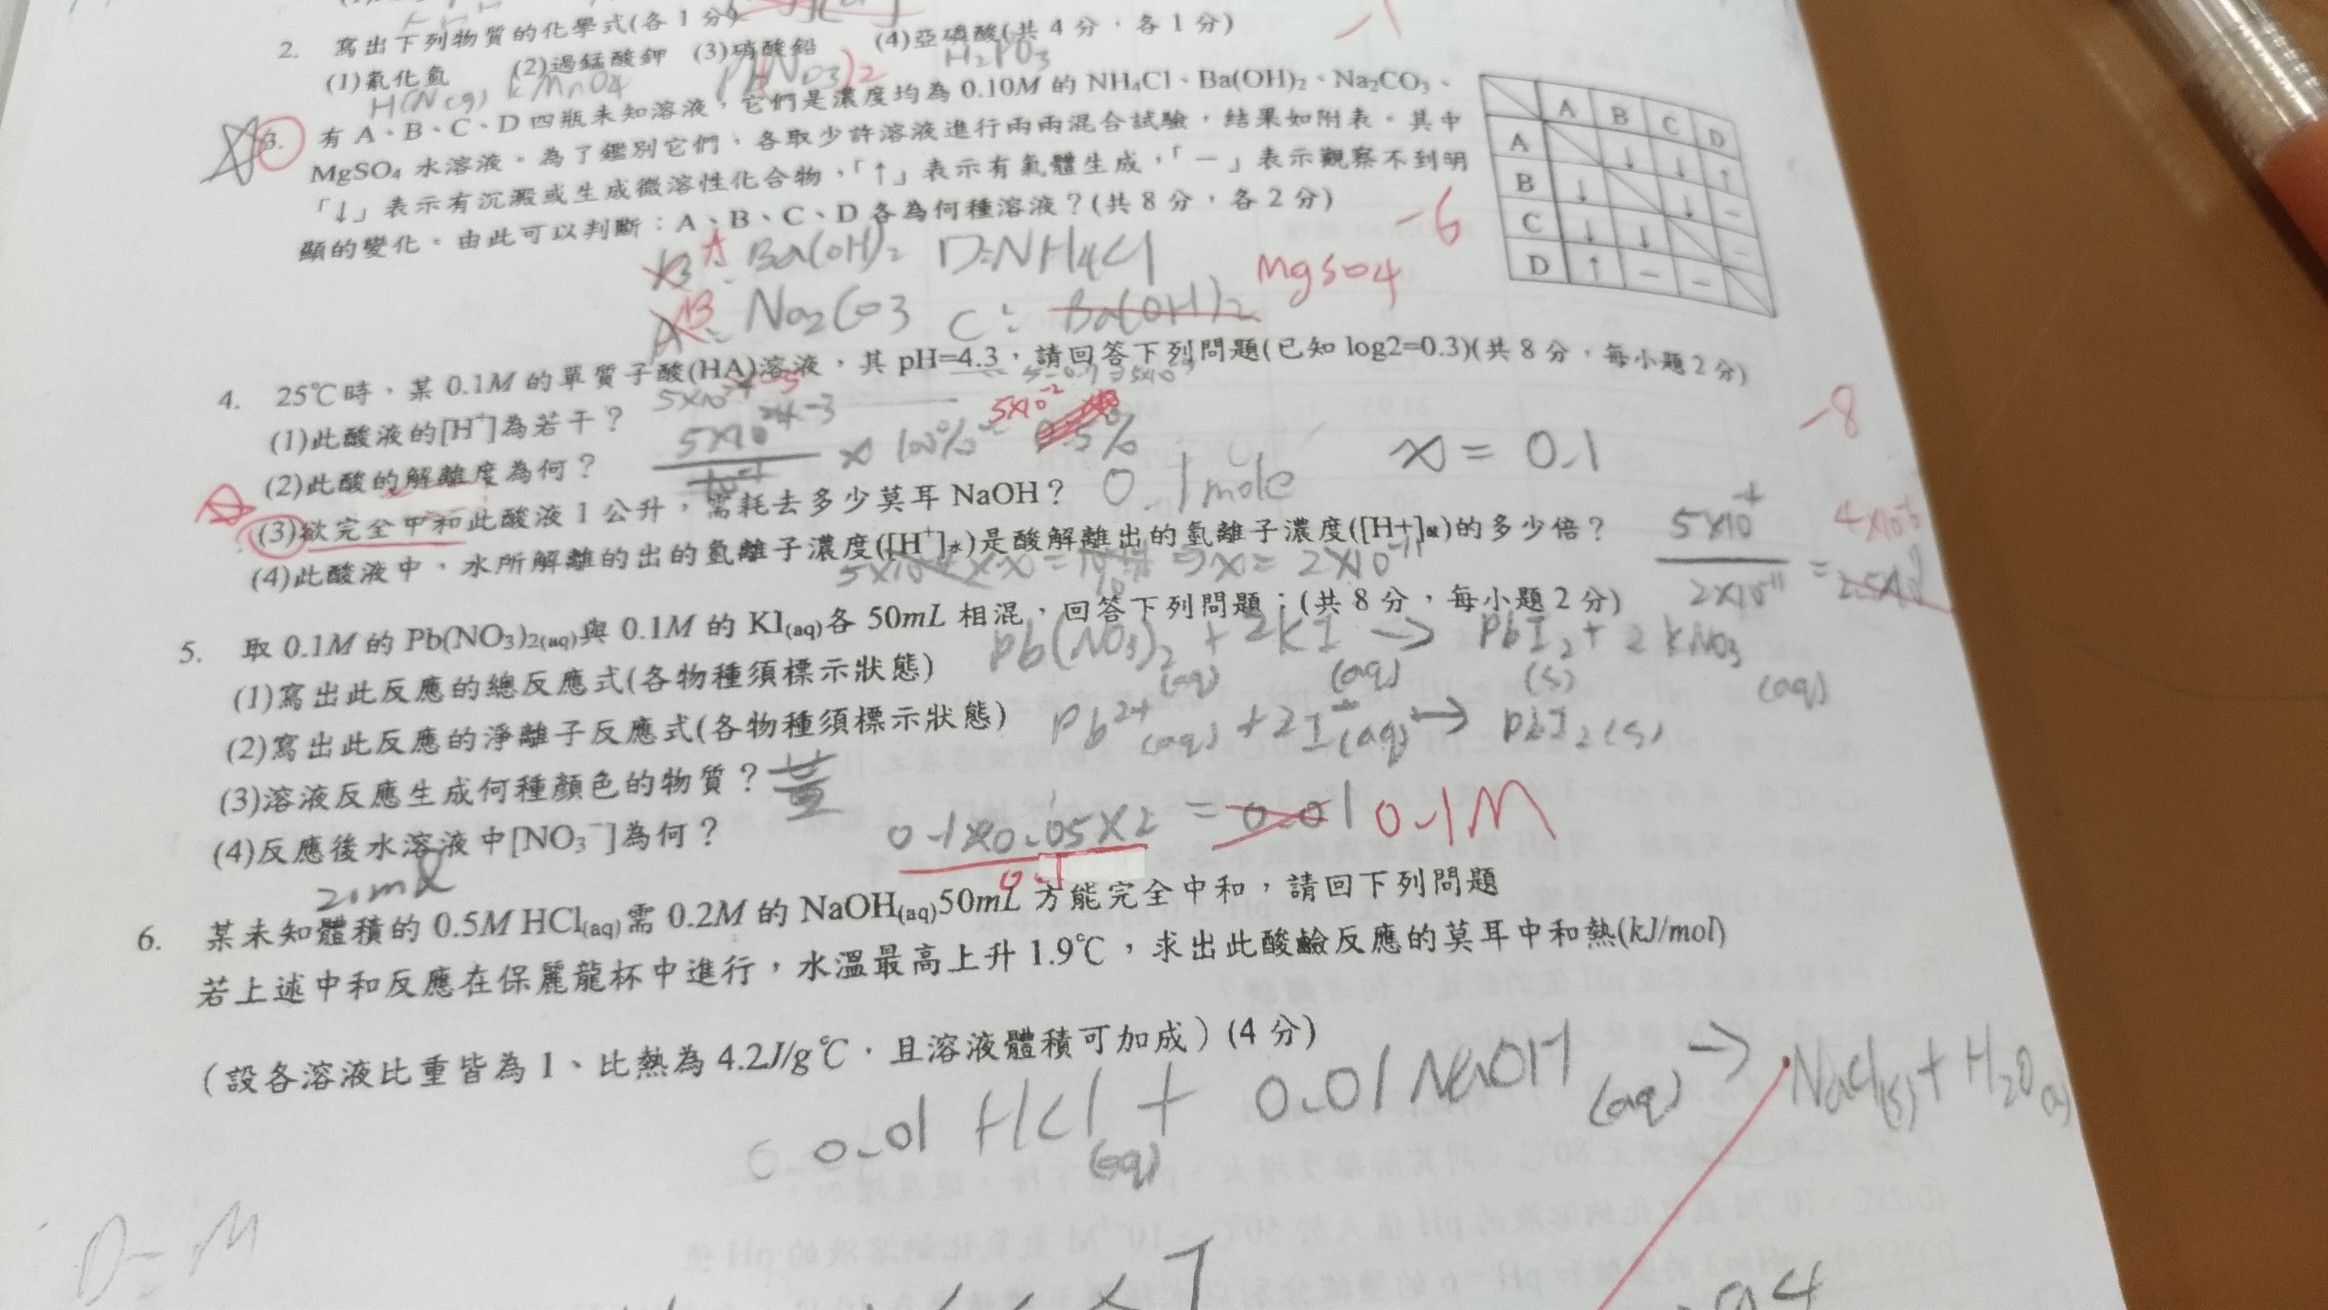 2. 寫出下列物質的化學式(各1分)
(1)氰化氫 (2)過錳酸鉀 (3)硝酸鉛 (4)亞磷酸(共4分,各1分)
KMnO4 Pb(NO3)2 H2PO3
3. 有A、B、C、D四瓶未知溶液,它們是濃度均為0.10M的NH₄Cl、Ba(OH)₂、Na₂CO₃、
MgSO₄水溶液。為了鑑別它們,各取少許溶液進行兩兩混合試驗,結果如附表。其中
「↓」表示有沉澱或生成微溶性化合物,「↑」表示有氣體生成,「-」表示觀察不到明
顯的變化。由此可以判斷:A、B、C、D各為何種溶液?(共8分,各2分)
A B C D
A ↓ ↓ ↑
B ↓ ↓ -
C ↓ ↓ -
D ↑ - -
-6
A: Ba(OH)2 D:NH4Cl
B: Na2CO3 C: Ba(OH)2 MgSO4
4. 25℃時,某0.1M的單質子酸(HA)溶液,其pH=4.3,請回答下列問題(已知log2=0.3)(共8分,每小題2分)
-8
(1)此酸液的[H⁺]為若干?
(2)此酸的解離度為何? x 100% 5x10-2 %
x = 0.1
(3)欲完全中和此酸液1公升,需耗去多少莫耳NaOH? 0.1mole
(4)此酸液中,水所解離的出的氫離子濃度([H⁺]水)是酸解離出的氫離子濃度([H+]酸)的多少倍?
=> x = 2x10-11
2x10-11 = 4x10-6
5. 取0.1M的Pb(NO₃)₂(aq)與0.1M的KI(aq)各50mL相混,回答下列問題:(共8分,每小題2分)
(1)寫出此反應的總反應式(各物種須標示狀態) Pb(NO3)2(aq) + 2KI(aq) → PbI2(s) + 2KNO3(aq)
(2)寫出此反應的淨離子反應式(各物種須標示狀態) Pb2+(aq) + 2I-(aq) → PbI2(s)
(3)溶液反應生成何種顏色的物質?黃
(4)反應後水溶液中[NO₃⁻]為何? 0.1x0.05x2 = 0.01 0.1M
0.1
20ml
6. 某未知體積的0.5M HCl(aq)需0.2M的NaOH(aq)50mL方能完全中和,請回下列問題
若上述中和反應在保麗龍杯中進行,水溫最高上升1.9℃,求出此酸鹼反應的莫耳中和熱(kJ/mol)
(設各溶液比重皆為1、比熱為4.2J/g℃,且溶液體積可加成)(4分)
0.01 HCl(aq) + 0.01 NaOH(aq) → NaCl(s) + H2O